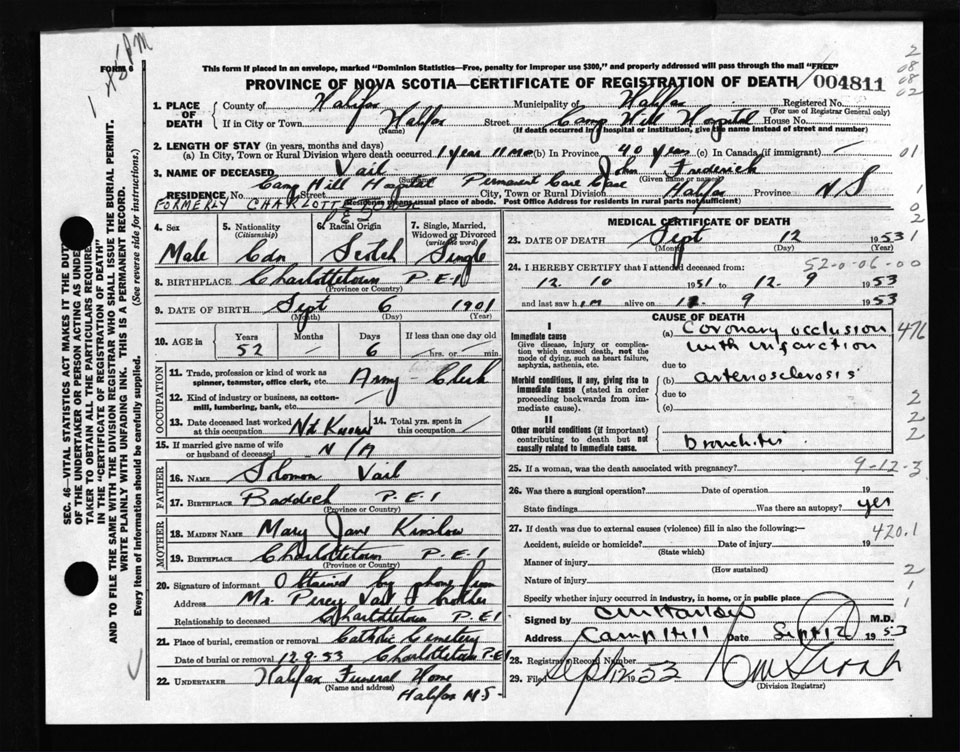 1 - 8/8 PM
FORM 6
This form if placed in an envelope, marked "Dominion Statistics—Free, penalty for improper use $300," and properly addressed will pass through the mail "FREE"
PROVINCE OF NOVA SCOTIA—CERTIFICATE OF REGISTRATION OF DEATH
004811
2
08
08
02
1. PLACE OF DEATH
County of Halifax Municipality of Halifax Registered No.
(For use of Registrar General only)
If in City or Town Halifax Street Camp Hill Hospital House No.
(Name) (If death occurred in hospital or institution, give the name instead of street and number)
2. LENGTH OF STAY (in years, months and days)
(a) In City, Town or Rural Division where death occurred 1 year 11 mo (b) In Province 40 years (c) In Canada (if immigrant) —
01
3. NAME OF DECEASED Vail John Frederick
(Given name or names)
RESIDENCE No. Camp Hill Hospital Permanent Care Case Street City, Town or Rural Division Halifax Province N.S
Residence means usual place of abode. Post Office Address for residents in rural parts not sufficient)
FORMERLY CHARLOTTETOWN P.E.I
4. Sex
Male
5. Nationality
(Citizenship)
Cdn
6. Racial Origin
Scotch
7. Single, Married, Widowed or Divorced
(write the word)
Single
8. BIRTHPLACE Charlottetown P.E.I
(Province or Country)
9. DATE OF BIRTH Sept 6 1901
(Month) (Day) (Year)
10. AGE in
Years Months Days If less than one day old
52 — 6 hrs. or min.
OCCUPATION
11. Trade, profession or kind of work as spinner, teamster, office clerk, etc. Army - Clerk
12. Kind of industry or business, as cotton-mill, lumbering, bank, etc.
13. Date deceased last worked at this occupation Not Known
14. Total yrs. spent in this occupation —
15. If married give name of wife or husband of deceased N/A
FATHER
16. NAME Solomon Vail
17. BIRTHPLACE Baddeck P.E.I
(Province or Country)
MOTHER
18. MAIDEN NAME Mary Jane Kinslow
19. BIRTHPLACE Charlottetown P.E.I
(Province or Country)
20. Signature of informant Obtained by phone from
Address Mr. Percy Vail brother
Relationship to deceased Charlottetown P.E.I
21. Place of burial, cremation or removal Catholic Cemetery
Date of burial or removal 12-9-53 Charlottetown P.E.I
22. UNDERTAKER Halifax Funeral Home
(Name and address)
Halifax N.S.
MEDICAL CERTIFICATE OF DEATH
23. DATE OF DEATH Sept 12 1953
(Month) (Day) (Year)
1
52-0-06-00
24. I HEREBY CERTIFY that I attended deceased from:
12. 10 1951 to 12. 9 1953
and last saw him alive on 12. 9 1953
CAUSE OF DEATH
I
Immediate cause
Give disease, injury or complication which caused death, not the mode of dying, such as heart failure, asphyxia, asthenia, etc.
(a) Coronary occlusion
with infarction
476
due to
Morbid conditions, if any, giving rise to immediate cause (stated in order proceeding backwards from immediate cause).
(b) arteriosclerosis
due to
(c)
2
2
2
II
Other morbid conditions (if important) contributing to death but not causally related to immediate cause.
bronchitis
25. If a woman, was the death associated with pregnancy?
9-12-3
26. Was there a surgical operation? Date of operation 19
State findings Was there an autopsy? yes
27. If death was due to external causes (violence) fill in also the following:—
420.1
Accident, suicide or homicide? Date of injury 19
(State which)
Manner of injury
(How sustained)
2
Nature of injury
Specify whether injury occurred in industry, in home, or in public place
1
Signed by M.D.
Address Camp Hill Date Sept 12 1953
28. Registrar's Record Number
29. Filed Sept 12 1953
(Division Registrar)
SEC. 46—VITAL STATISTICS ACT MAKES IT THE DUTY
OF THE UNDERTAKER OR PERSON ACTING AS UNDER
TAKER TO OBTAIN ALL THE PARTICULARS REQUIRED
IN THE "CERTIFICATE OF REGISTRATION OF DEATH"
AND TO FILE THE SAME WITH THE DIVISION REGISTRAR WHO SHALL ISSUE THE BURIAL PERMIT.
WRITE PLAINLY WITH UNFADING INK. THIS IS A PERMANENT RECORD.
Every item of information should be carefully supplied. (See reverse side for instructions.)